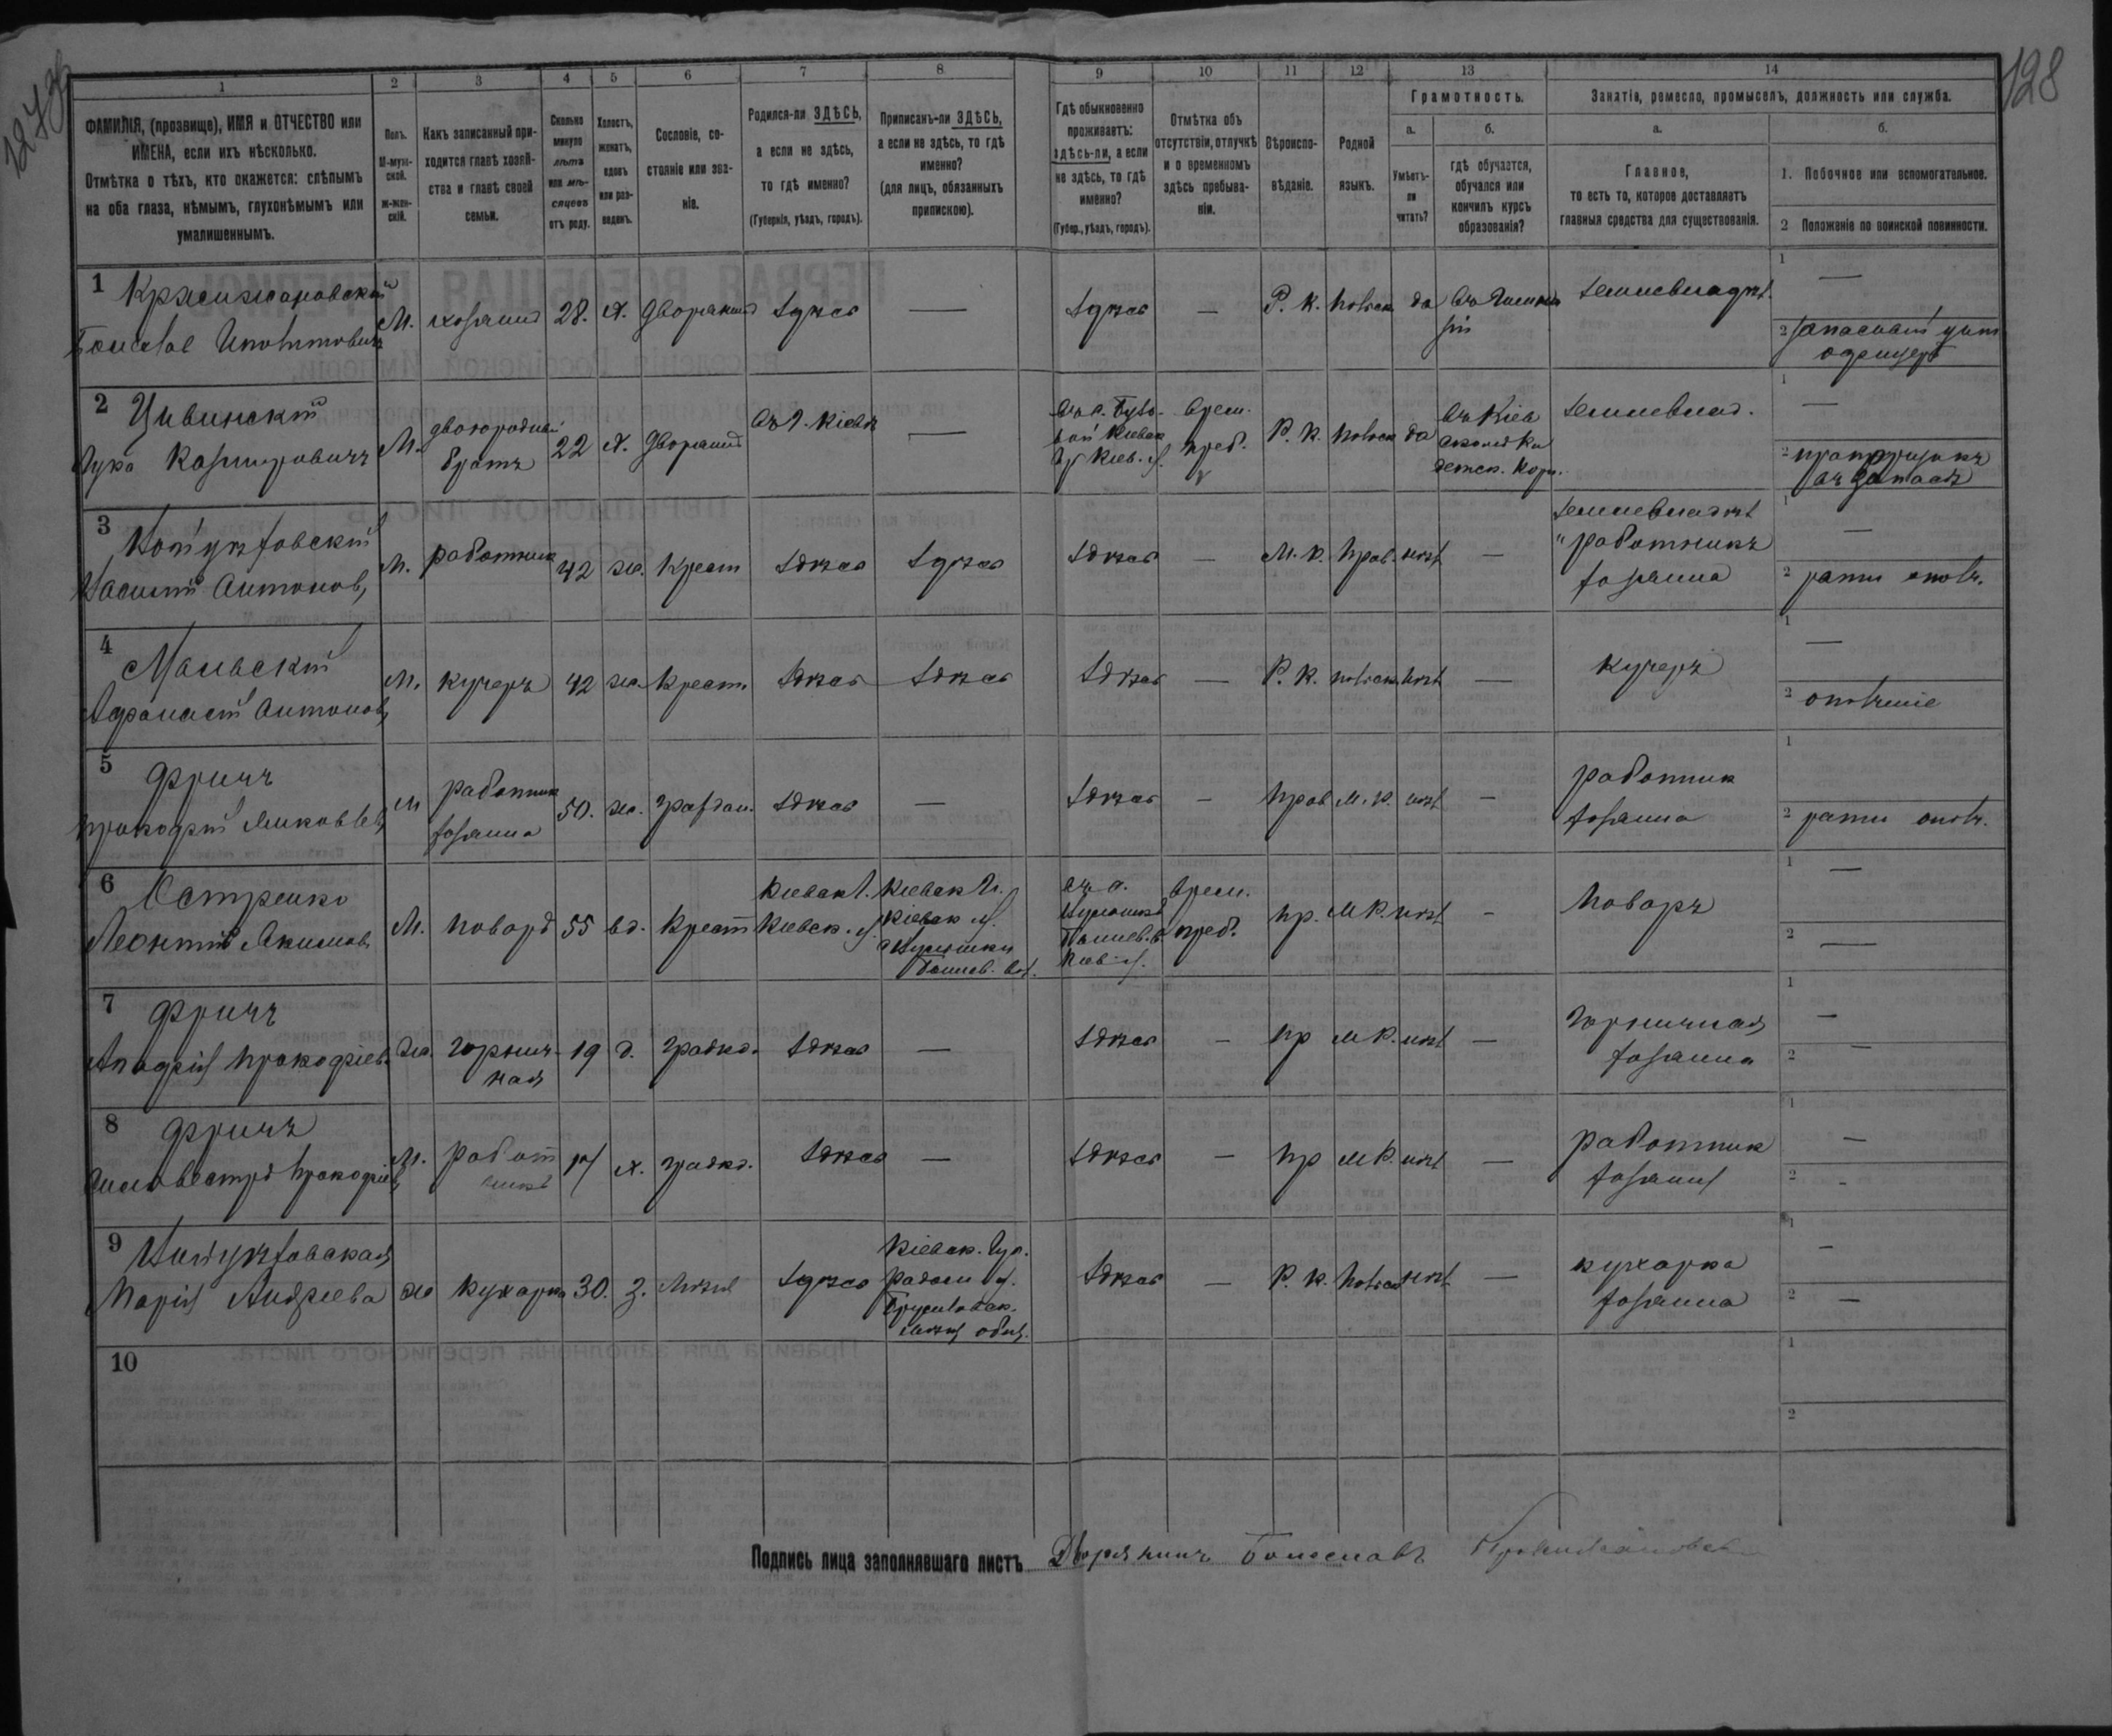 128
1
2
3
4
5
6
7
8
9
10
11
12
13
14
ФАМИЛІЯ, (прозвище), ИМЯ и ОТЧЕСТВО или
ИМЕНА, если ихъ нѣсколько.
Отмѣтка о тѣхъ, кто окажется: слѣпымъ
на оба глаза, нѣмымъ, глухонѣмымъ или
умалишеннымъ.
Полъ.
М-муж-
ской.
ж-жен-
скій.
Какъ записанный при-
ходится главѣ хозяй-
ства и главѣ своей
семьи.
Сколько
минуло
лѣтъ
или мѣ-
сяцевъ
отъ роду.
Холостъ,
женатъ,
вдовъ
или раз-
веденъ.
Сословіе, со-
стояніе или зва-
ніе.
Родился-ли ЗДѢСЬ,
а если не здѣсь,
то гдѣ именно?
(Губернія, уѣздъ, городъ).
Приписанъ-ли ЗДѢСЬ,
а если не здѣсь, то гдѣ
именно?
(для лицъ, обязанныхъ
припискою).
Гдѣ обыкновенно
проживаетъ:
здѣсь-ли, а если
не здѣсь, то гдѣ
именно?
(Губер., уѣздъ, городъ).
Отмѣтка объ
отсутствіи, отлучкѣ
и о временномъ
здѣсь пребыва-
ніи.
Вѣроиспо-
вѣданіе.
Родной
языкъ.
Грамотность.
а.
Умѣетъ-
ли
читать?
б.
гдѣ обучается,
обучался или
кончилъ курсъ
образованія?
Занятіе, ремесло, промыселъ, должность или служба.
а.
Главное,
то есть то, которое доставляетъ
главныя средства для существованія.
б.
1. Побочное или вспомогательное.
2 Положеніе по воинской повинности.
1 Кржижановскій
Болеславъ Иполитовичъ
М. хозяинъ 28. х. дворянинъ здѣсь — здѣсь — Р. К. польск да въ Гимна
зіи
землевладѣл.
1 —
2 запасный унт
офицеръ
2 Цивинскій
Лука Казимировичъ
М. двоюродный
братъ
22 х. дворянинъ въ г. Кіевѣ —
врем.
преб.
Р. К. польск да въ Кіев
скомъ Ка
детск. Корп.
землевлад.
1 —
2 прапорщикъ
въ запасѣ
3
Василій Антонов.
М. работник 42 ж. Крест здѣсь здѣсь здѣсь — прав. нѣт —
работникъ
хозяина
1 —
2 ратн ополч.
4
Афанасій Антонов
М. кучеръ 42 ж. Крест. здѣсь здѣсь здѣсь — Р. К. польск нѣт —
кучеръ
1 —
2 ополченіе
5 Фричъ
Прокофій
М работник
хозяина
50. ж. граждан. здѣсь — здѣсь — прав М. Р. нѣт —
работник
хозяина
1
2 ратн ополч.
6
Леонтій Акимов
М. поваръ 55 вд. Крест
Кіевск Г.
Кіевск. у.
Кіевск Г.
Кіевск у.
врем.
преб.
пр. М Р. нѣт -
поваръ
1 —
2 —
7 Фричъ
Прокофіев.
ж. горнич-
ная
19 д. гражд. здѣсь — здѣсь — пр М Р. нѣт —
горничная
хозяина
1 —
2 —
8 Фричъ
Сильвестръ Прокофіев
М. работ
никъ
17 х. гражд. здѣсь — здѣсь — пр М Р. нѣт —
работник
хозяина
1 —
2 -
9
Марія Андреева
ж кухарка 30. з. здѣсь
Кіевск. Губ.
Радом у.
Брусиловск.
здѣсь — Р. К. польск нѣт —
кухарка
хозяина
1 —
2 —
10
1
2
Подпись лица заполнявшаго листъ Дворянинъ Болеславъ